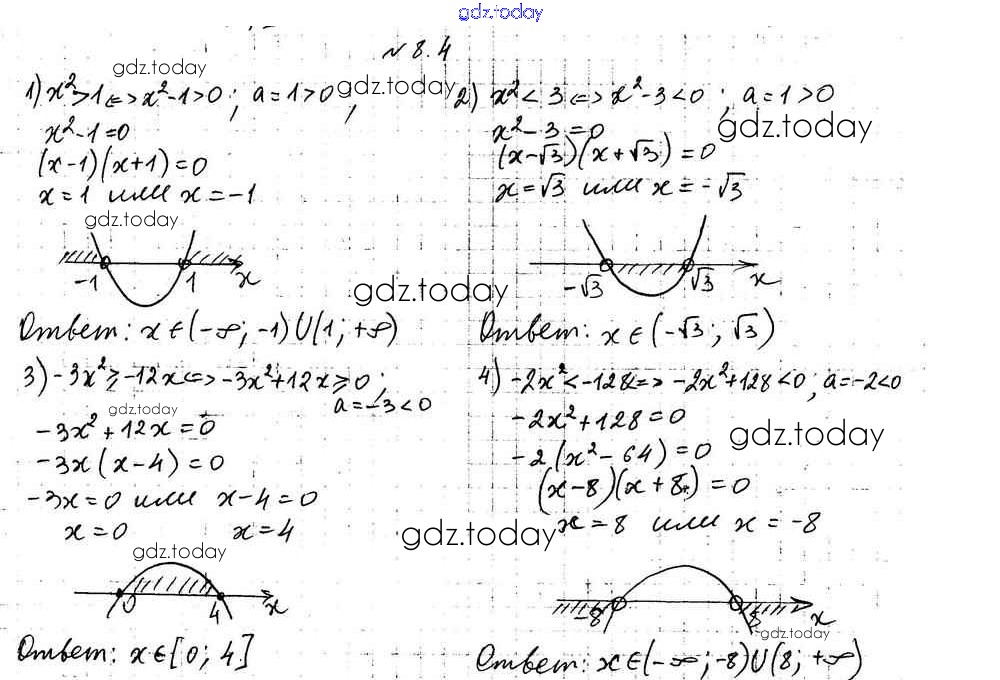 gdz.today
№ 8.4
gdz.today
1) x² > 1 <=> x² - 1 > 0 ; a = 1 > 0 ;
gdz.today
x² - 1 = 0
(x - 1)(x + 1) = 0
x = 1 или x = -1
gdz.today
-1 1 x
Ответ: x ∈ (-∞; -1) U (1; +∞)
2) x² < 3 <=> x² - 3 < 0 ; a = 1 > 0
gdz.today
x² - 3 = 0
(x - √3)(x + √3) = 0
x = √3 или x = -√3
-√3 √3 x
gdz.today
Ответ: x ∈ (-√3; √3)
3) -3x² ≥ -12x <=> -3x² + 12x ≥ 0 ;
a = -3 < 0
gdz.today
-3x² + 12x = 0
-3x (x - 4) = 0
-3x = 0 или x - 4 = 0
x = 0 x = 4
gdz.today
gdz.today
0 4 x
Ответ: x ∈ [0; 4]
4) -2x² < -128 <=> -2x² + 128 < 0 ; a = -2 < 0
-2x² + 128 = 0
gdz.today
-2 (x² - 64) = 0
(x - 8)(x + 8) = 0
x = 8 или x = -8
-8 8 x
gdz.today
Ответ: x ∈ (-∞; -8) U (8; +∞)